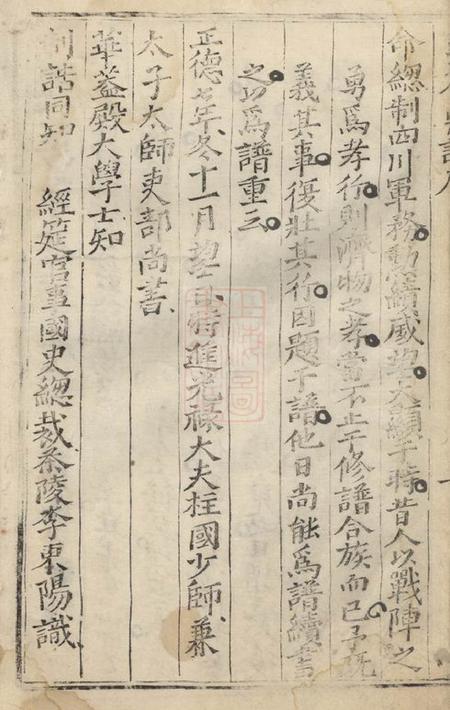 命總制四川軍務勳績威望大顯于時昔人以戰陣之
勇爲孝行則濟物之孝當不止于修譜合族而已予既
義其事復壯其行因題于譜他日尚能爲譜續書
之以爲譜重云
正德七年冬十一月望旦特進光祿大夫柱國少師兼
太子太師吏部尚書
華蓋殿大學士知
制誥同知 經筵官事國史總裁茶陵李東陽識